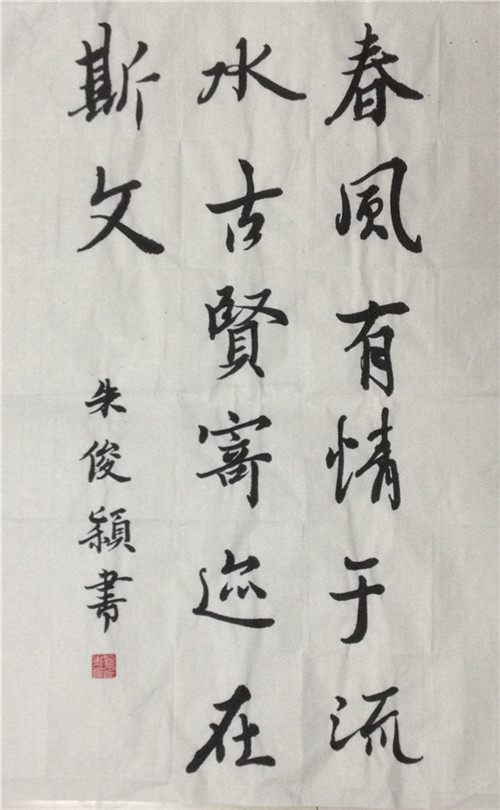 春風有情于流
水古賢寄迹在
斯文
朱俊穎書